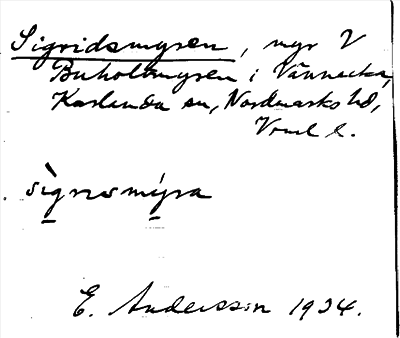 Sigridsmyren, myr V
Buholmmyren i Vännacka,
Karlanda sn, Nordmarks hd,
Vrml l.
sìgrəsmýra
E. Andersson 1934.